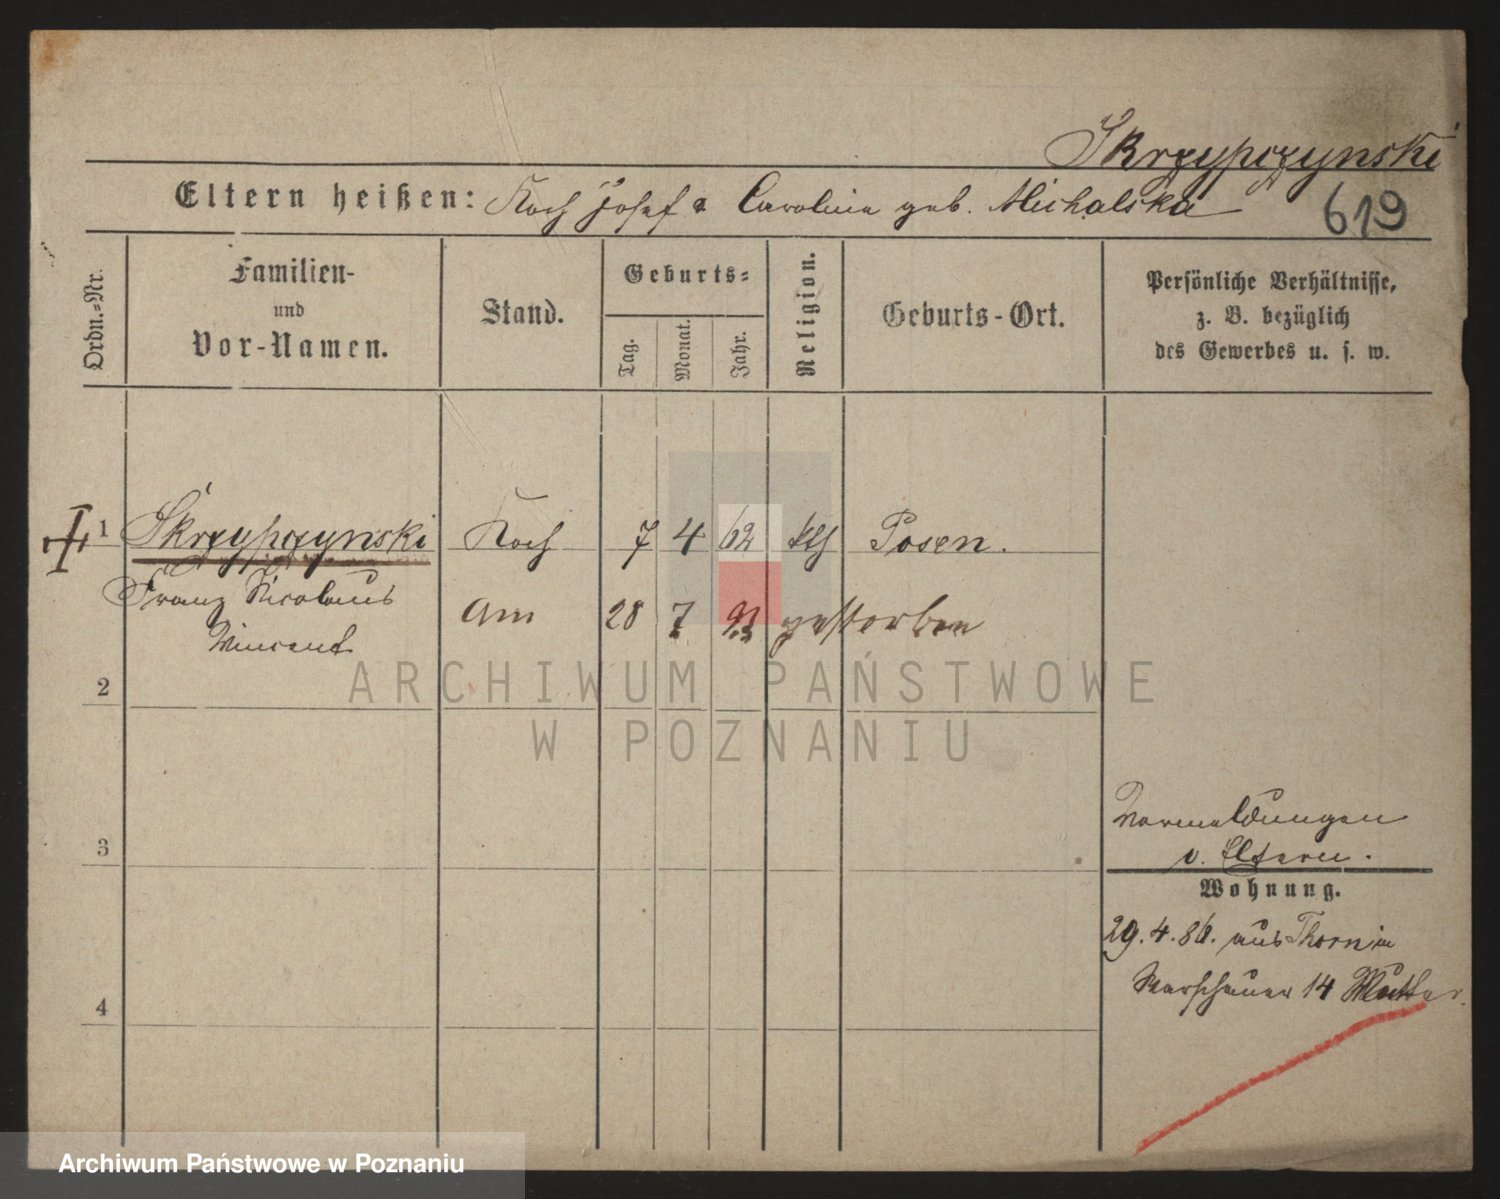 Skrzypczynski
Eltern heißen: Koch Josef & Caroline geb. Michalska
619
Ordn.=Nr.
Familien-
und
Vor-Namen.
Stand.
Geburts=
Tag.
Monat.
Jahr.
Religion.
Geburts-Ort.
Persönliche Verhältnisse,
z. B. bezüglich
des Gewerbes u. s. w.
1 Skrzypczynski Koch 7 4 62 kth Posen.
Franz Nicolaus am 28 7 93 gestorben
Vincent
2
3
4
Vormeldungen
v. Eltern.
Wohnung.
29.4.86. aus Thorn in
Warschauer 14 Mutter.
ARCHIWUM PAŃSTWOWE
W POZNANIU
Archiwum Państwowe w Poznaniu